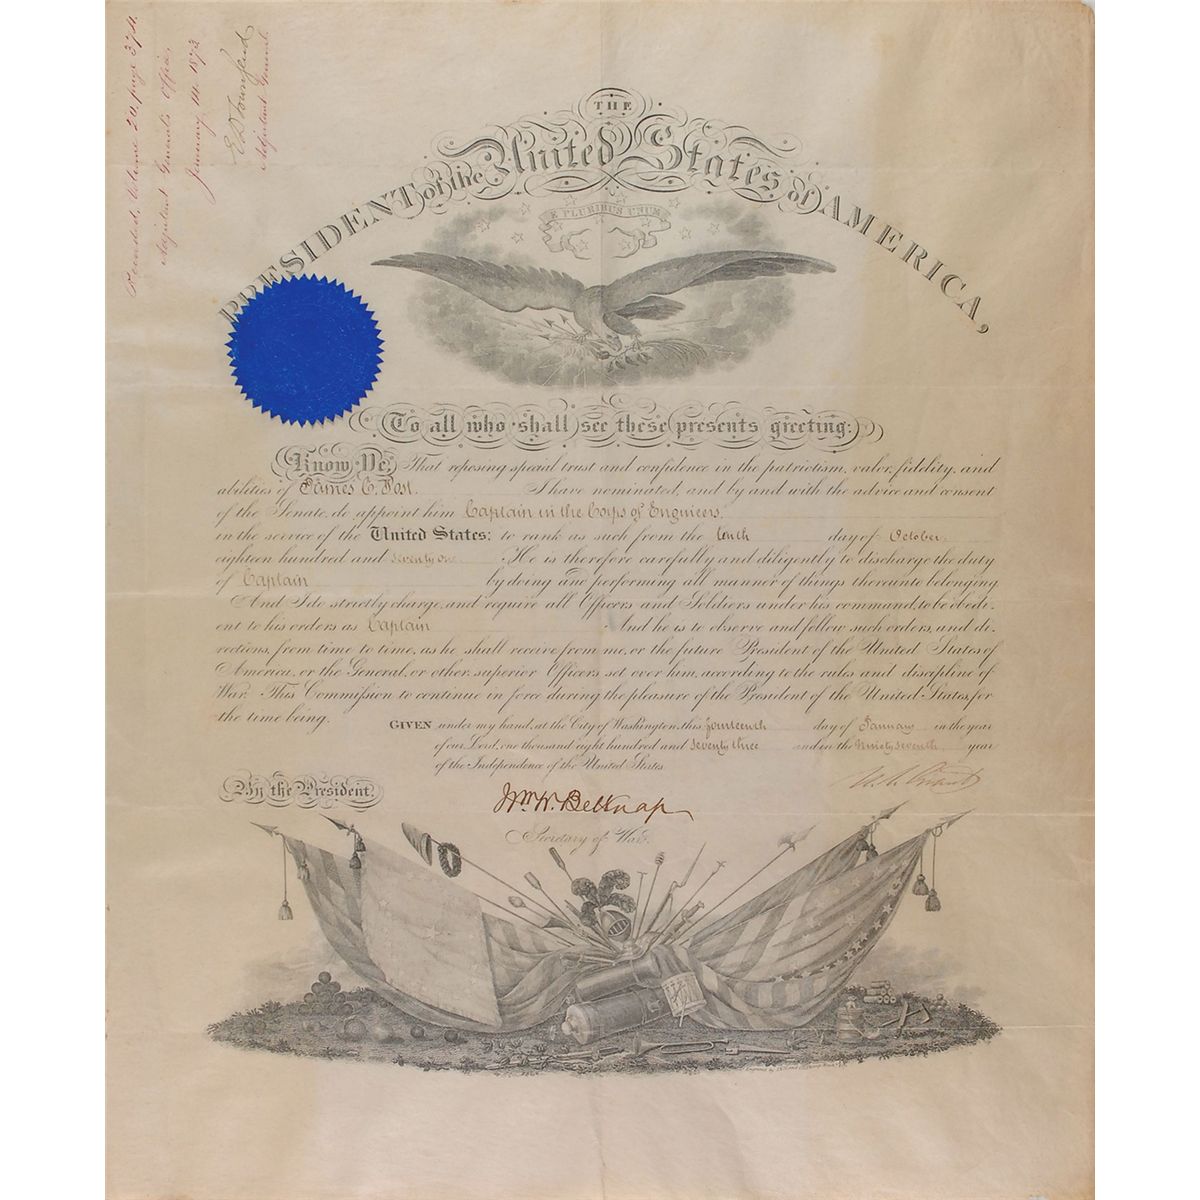 Recorded, Volume 20, page 374.
Adjutant General's Office,
January 14. 1873
E D Townsend
Adjutant General.
THE
PRESIDENT of the United States of AMERICA,
E PLURIBUS UNUM
To all who shall see these presents greeting:
Know Ye, That reposing special trust and confidence in the patriotism, valor, fidelity, and
abilities of James C. Post. I have nominated, and by and with the advice and consent
of the Senate, do appoint him Captain in the Corps of Engineers,
in the service of the United States: to rank as such from the tenth day of October,
eighteen hundred and seventy one. He is therefore carefully and diligently to discharge the duty
of Captain by doing and performing all manner of things thereunto belonging.
And I do strictly charge, and require all Officers and Soldiers under his command to be obedi-
ent to his orders as Captain. And he is to observe and follow such orders, and di-
rections, from time to time, as he shall receive from me, or the future President of the United States of
America, or the General, or other superior Officers set over him, according to the rules and discipline of
War. This Commission to continue in force during the pleasure of the President of the United States, for
the time being.
GIVEN under my hand, at the City of Washington, this fourteenth day of January in the year
of our Lord, one thousand eight hundred and seventy three and in the Ninety seventh year
of the Independence of the United States.
By the President.
U. S. Grant
Wm W. Belknap
Secretary of War.
Engraved by